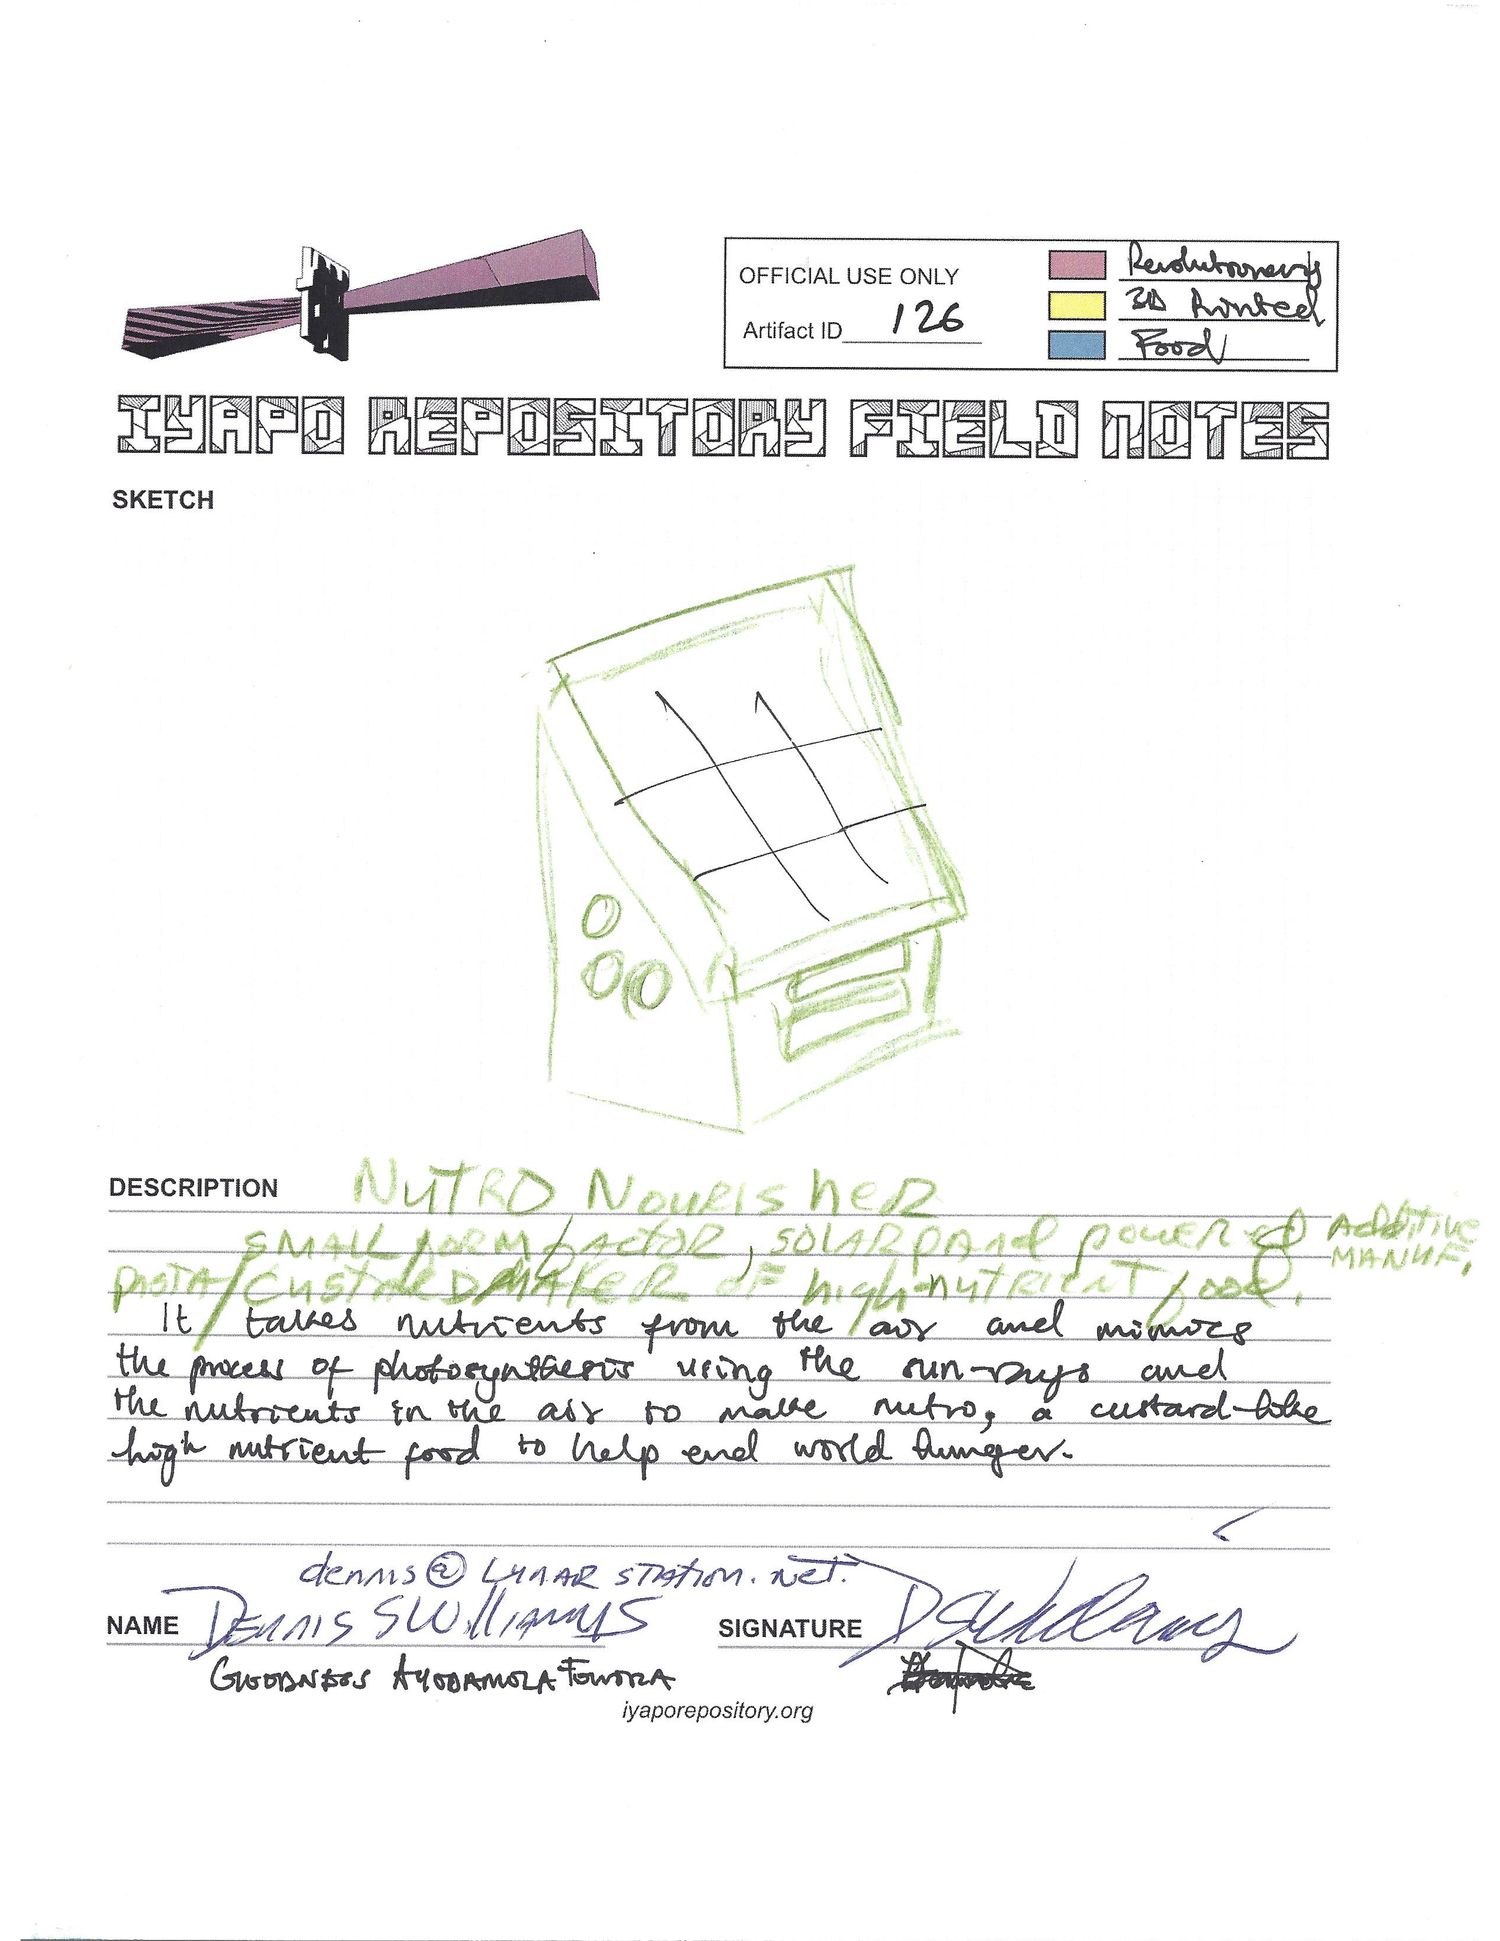 OFFICIAL USE ONLY
Artifact ID 126
Revolutionary
3D Printed
Food
IYAPO REPOSITORY FIELD NOTES
SKETCH
DESCRIPTION NUTRO NOURISHER
SMALL FORM FACTOR, SOLAR PANEL POWERED ADDITIVE MANUF.
PASTA/CUSTARD MAKER OF high-NUTRIENT food.
It takes nutrients from the air and mimics
the process of photosynthesis using the sun-rays and
the nutrients in the air to make nutro, a custard-like
high nutrient food to help end world hunger.
dennis@LUNARSTATION.NET.
NAME DENNIS S WILLIAMS SIGNATURE DSWilliams
GOODNESS AYODAMOLA
iyaporepository.org